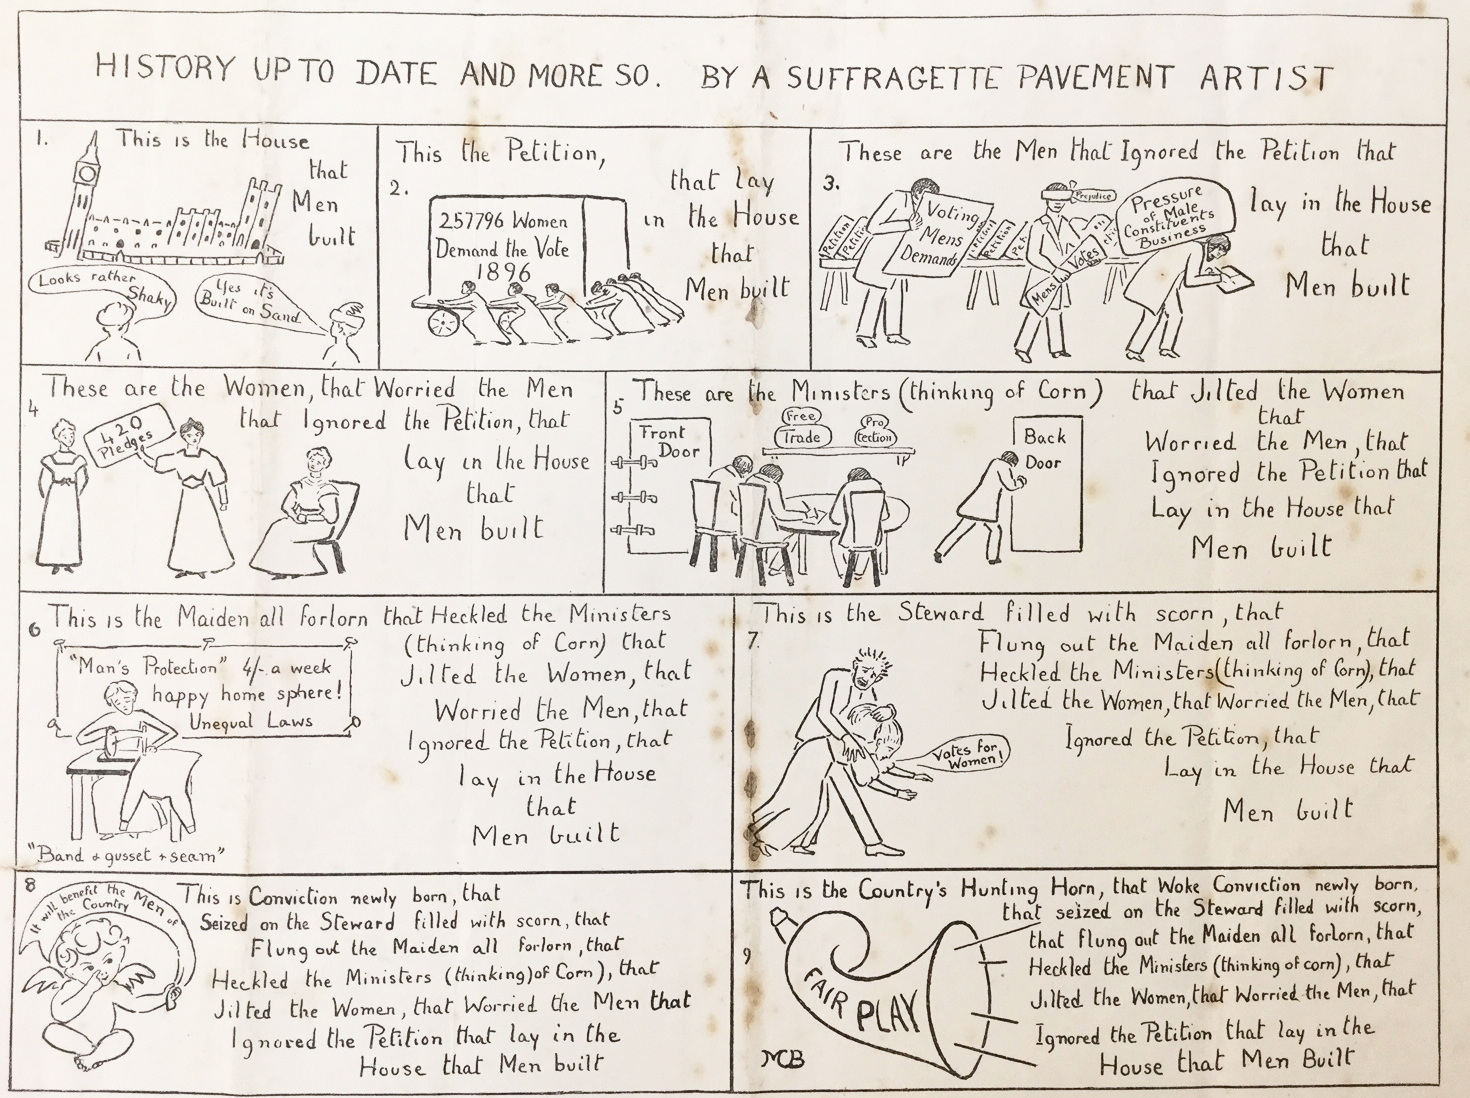 HISTORY UP TO DATE AND MORE SO. BY A SUFFRAGETTE PAVEMENT ARTIST
1.
This is the House
that
Men
built
Looks rather
Shaky
Yes it's
Built on Sand
This the Petition,
2.
that lay
in the House
that
Men built
257796 Women
Demand the Vote
1896
These are the Men that Ignored the Petition that
3.
lay in the House
that
Men built
Petition
Petition
Voting
Mens
Demands
Petition
Petition
Prejudice
Mens
Votes
Pressure
of Male
Constituents
Business
These are the Women, that Worried the Men
4
that Ignored the Petition, that
lay in the House
that
Men built
420
Pledges
These are the Ministers (thinking of Corn) that Jilted the Women
5
that
Worried the Men, that
Ignored the Petition that
Lay in the House that
Men built
Front
Door
Free
Trade
Pro
tection
Back
Door
This is the Maiden all forlorn that Heckled the Ministers
6
(thinking of Corn) that
Jilted the Women, that
Worried the Men, that
Ignored the Petition, that
lay in the House
that
Men built
"Man's Protection" 4/- a week
happy home sphere!
Unequal Laws
"Band & gusset & seam"
This is the Steward filled with scorn, that
7.
Flung out the Maiden all forlorn, that
Heckled the Ministers (thinking of Corn), that
Jilted the Women, that Worried the Men, that
Ignored the Petition, that
Lay in the House that
Men built
Votes for
Women!
8
It will benefit the Men of
the Country
This is Conviction newly born, that
Seized on the Steward filled with scorn, that
Flung out the Maiden all forlorn, that
Heckled the Ministers (thinking) of Corn), that
Jilted the Women, that Worried the Men that
Ignored the Petition that lay in the
House that Men built
This is the Country's Hunting Horn, that Woke Conviction newly born,
that seized on the Steward filled with scorn,
that flung out the Maiden all forlorn, that
9
Heckled the Ministers (thinking of corn), that
Jilted the Women, that Worried the Men, that
Ignored the Petition that lay in the
House that Men Built
FAIR PLAY
MCB